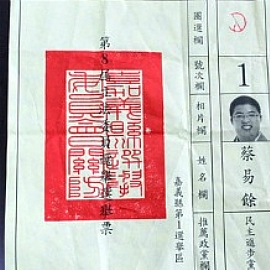 第8屆立法委員選舉選舉票
圈選欄
號次欄
相片欄
姓名欄
推薦政黨欄
嘉義縣第1選舉區
1
蔡易餘
民主進步黨